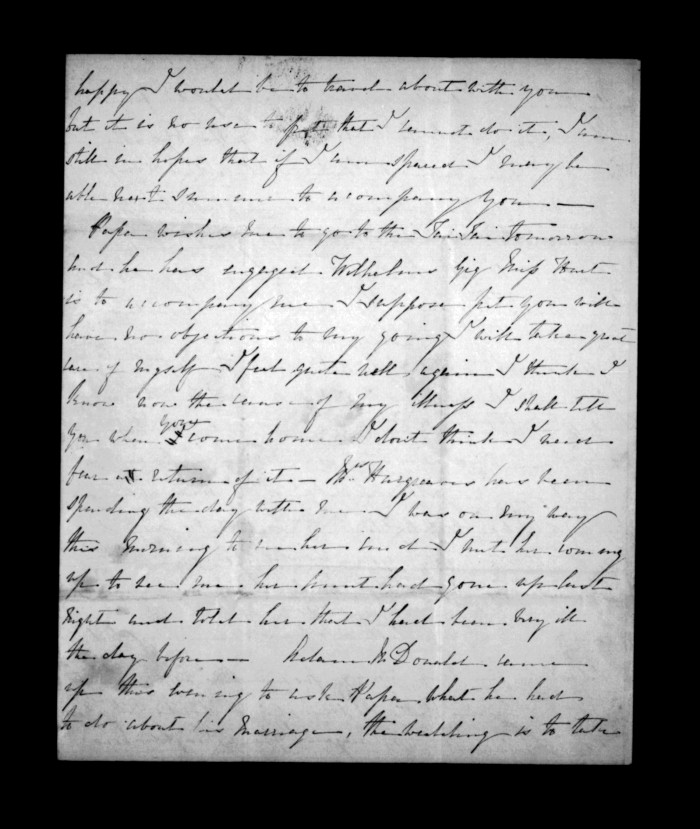 happy I would be to travel about with you
but it is no use to fret that I cannot do it, I am
still in hopes that if I am spared I may be
able next summer to accompany you —
Papa wishes me to go to the Tai Tai tomorrow
and he has engaged Wilhelms Gig Miss Hart
is to accompany me I suppose pet you will
have no objections to my going I will take great
care of myself I feel quite well again I think I
know now the cause of my illness I shall tell
you when you come home I dont think I need
fear a return of it — Mrs Hargreaves has been
spending the day with me I was on my way
this morning to see her and I met her coming
up to see me her had gone up last
night and told her that I had been very ill
the day before — Adam McDonald came
up this evening to ask Papa what he had
to do about his marriage, the wedding is to take